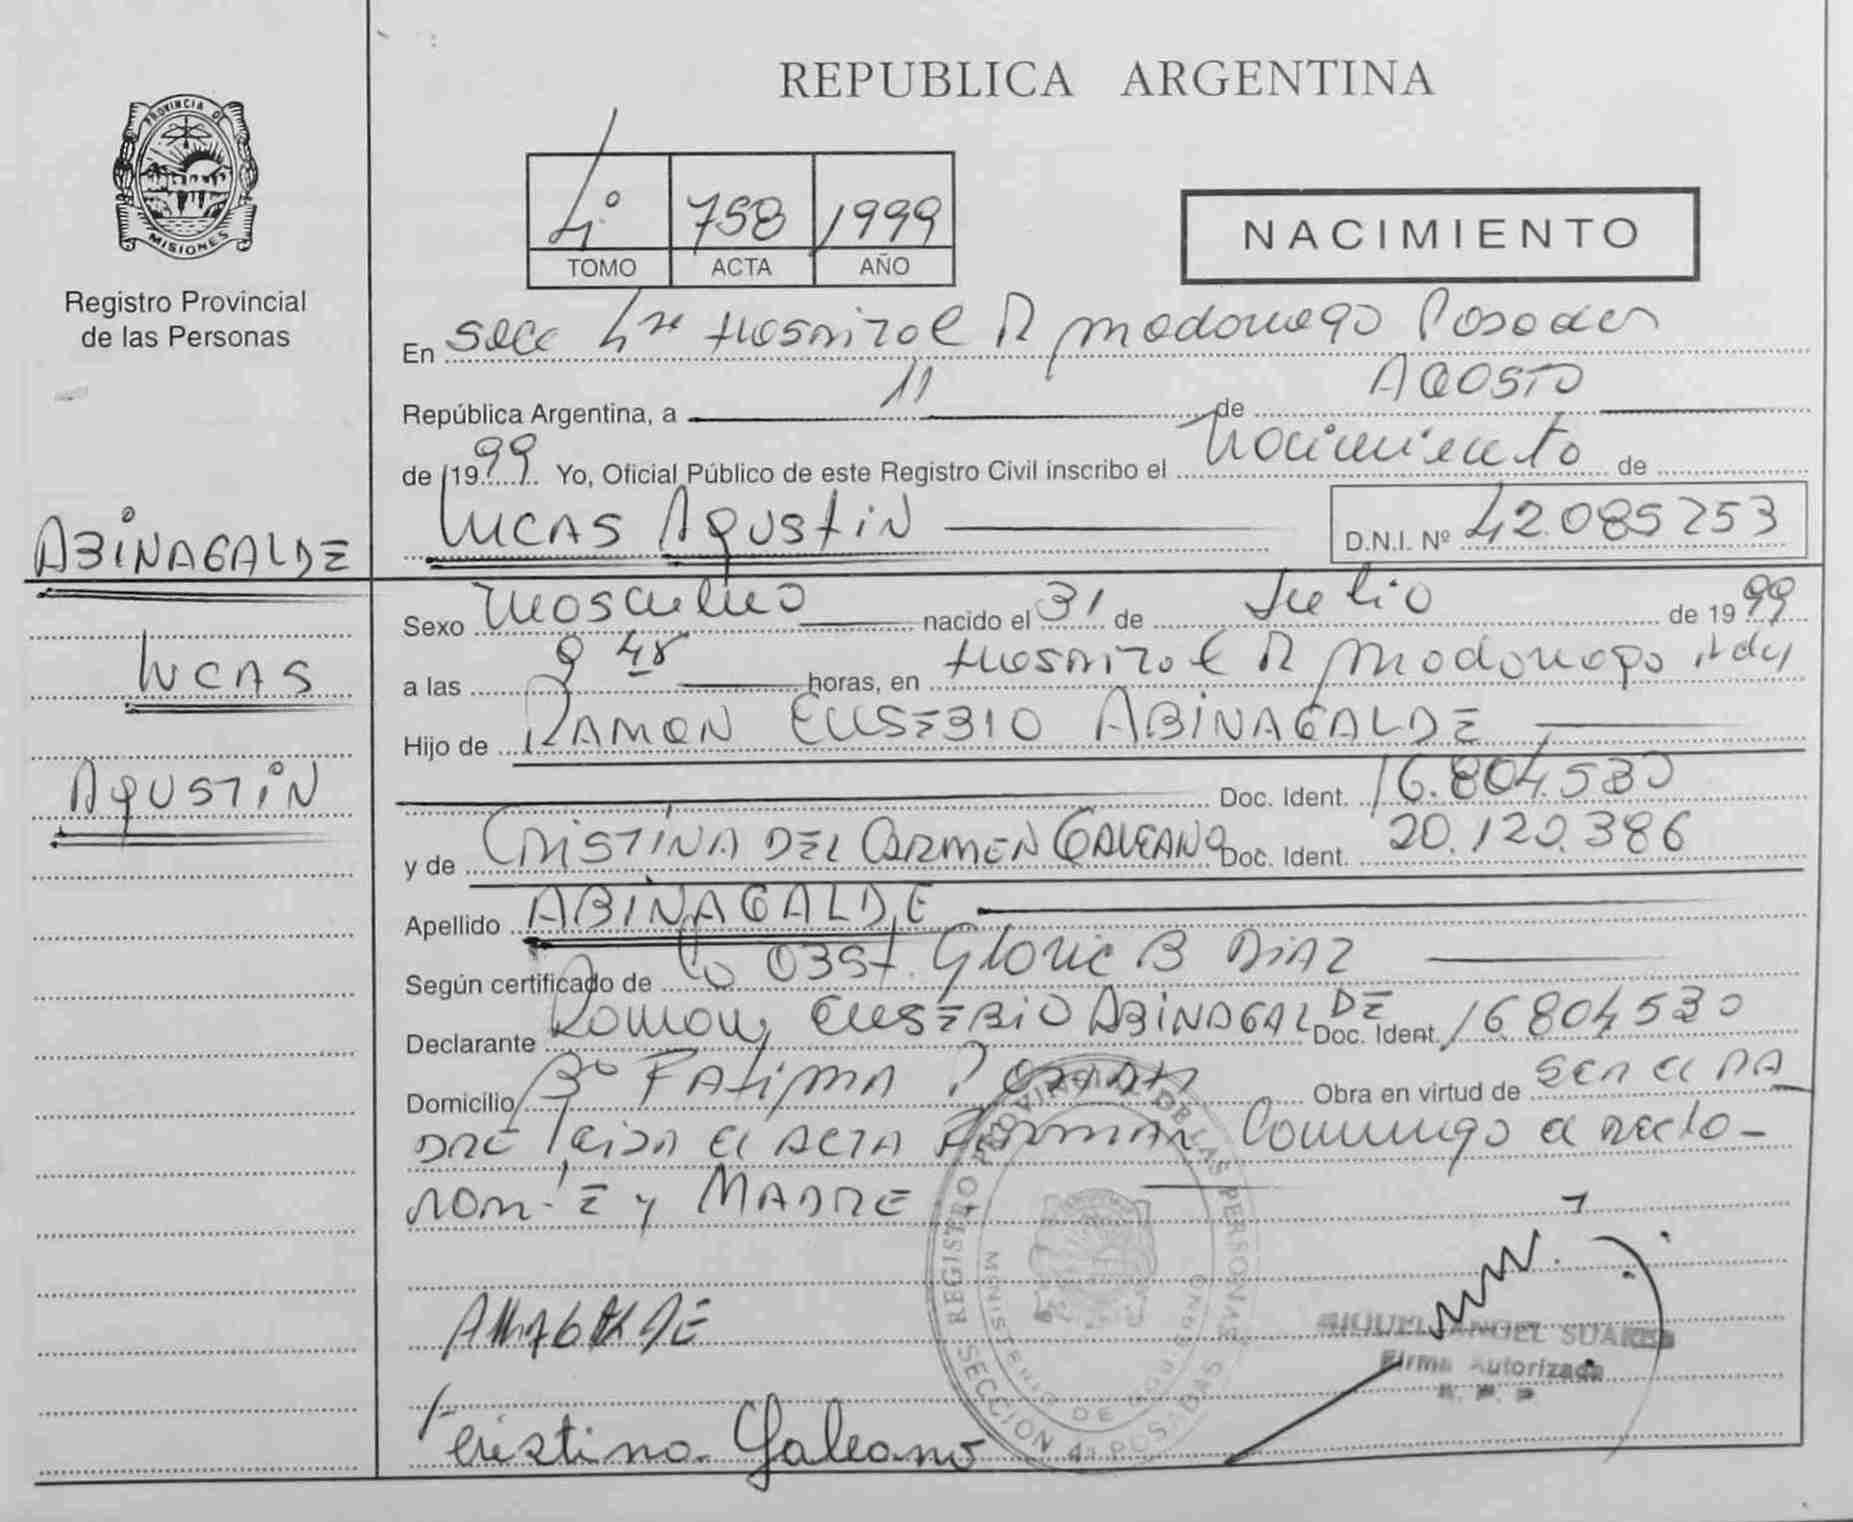 REPUBLICA ARGENTINA
PROVINCIA DE
MISIONES
Registro Provincial
de las Personas
4º 758 1999
TOMO ACTA AÑO
NACIMIENTO
En Secc 4ta Hospital R Madariaga Posadas
República Argentina, a 11 de AGOSTO
de 1999 Yo, Oficial Público de este Registro Civil inscribo el Nacimiento de
LUCAS AgUStiN D.N.I. Nº 42.085253
ABINAGALDE
LUCAS
AgUSTIN
Sexo Masculino nacido el 31 de Julio de 1999
a las 9 45 horas, en Hospital R Madariaga
Hijo de RAMON EUSEBIO ABINAGALDE
Doc. Ident. 16.804.530
y de CRISTINA DEL CARMEN GALEANO Doc. Ident. 20.120.386
Apellido ABINAGALDE
Según certificado de La OBSt. Gloria B DIAZ
Declarante Ramon EUSEBIO ABINAGALDE Doc. Ident. 16804530
Domicilio Bº FATIMA Obra en virtud de SER el PA
DRE leida el ACTA FIRMAN Conmigo el
y MADRE
REGISTRO PROVINCIAL DE LAS PERSONAS
MINISTERIO DE GOBIERNO
SECCION 4ª POSADAS
MIGUEL ANGEL SUAREZ
Firma Autorizada
R. P. P.
Cristina Galeano